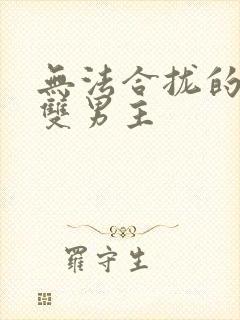 無法合拢的
雙男主
羅守生